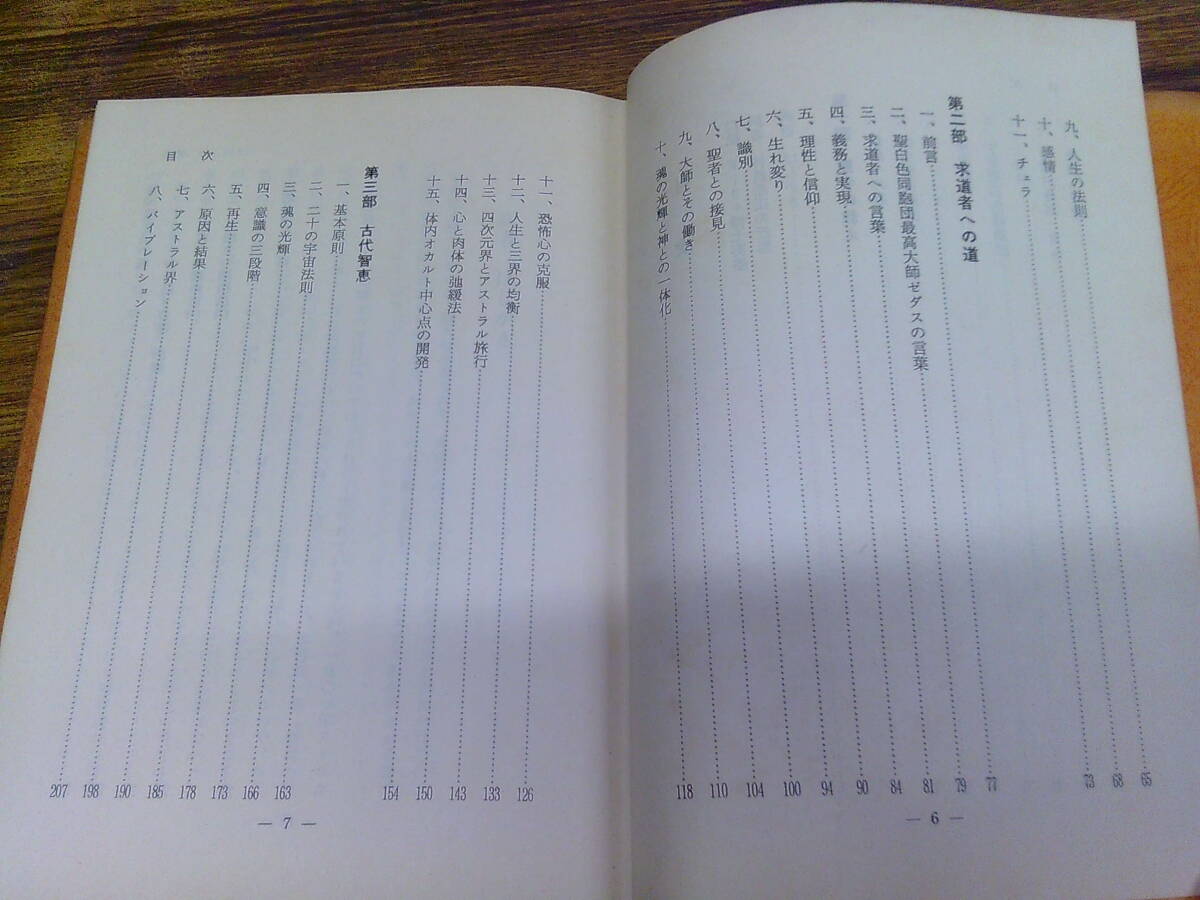 九、人生の法則 65
十、感情 68
十一、チェラ 73
第二部 求道者への道
一、前言 77
二、聖白色同胞団最高大師ゼダスの言葉 79
三、求道者への言葉 81
四、義務と実現 84
五、理性と信仰 90
六、生れ変り 94
七、識別 100
八、聖者との接見 104
九、大師とその働き 110
十、魂の光輝と神との一体化 118
— 6 —
十一、恐怖心の克服 126
十二、人生と三界の均衡 133
十三、四次元界とアストラル旅行 143
十四、心と肉体の弛緩法 150
十五、体内オカルト中心点の開発 154
第三部 古代智恵
一、基本原則 163
二、二十の宇宙法則 166
三、魂の光輝 173
四、意識の三段階 178
五、再生 185
六、原因と結果 190
七、アストラル界 198
八、バイブレーション 207
目次
— 7 —